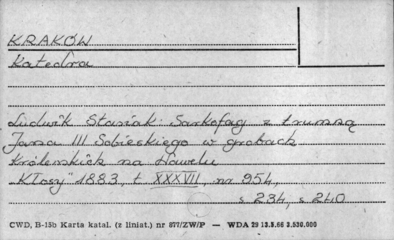 KRAKÓW
Katedra
Ludwik Stasiak: Sarkofag z trumną
Jana III Sobieskiego w grobach
Królewskich na Wawelu
„Kłosy" 1883, t. XXXVII, nr 954,
s. 234, s. 240
CWD, B-15b Karta katal. (z liniat.) nr 877/ZW/P — WDA 29 13.5.66 2.530.000